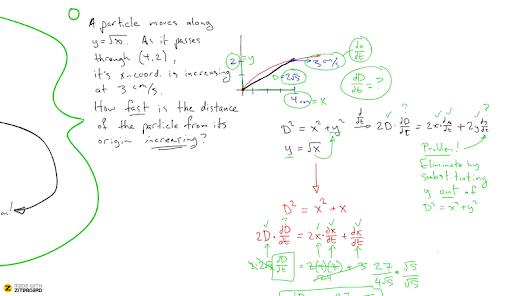 A particle moves along
y=√x. As it passes
through (4,2),
it's x-coord. is increasing
at 3 cm/s.
How fast is the distance
of the particle from its
origin increasing?
2 = y
D = 2√5
3 cm/s
dx/dt
dD/dt = ?
4 cm = x
D² = x² + y²
y = √x
d/dt
2D · dD/dt = 2x · dx/dt + 2y dy/dt
Problem!
Eliminate by
substituting
y out of
D² = x² + y²
D² = x² + x
2D · dD/dt = 2x · dx/dt + dx/dt
dD/dt
27/4√5 · √5/√5
MADE WITH
ZITEBOARD